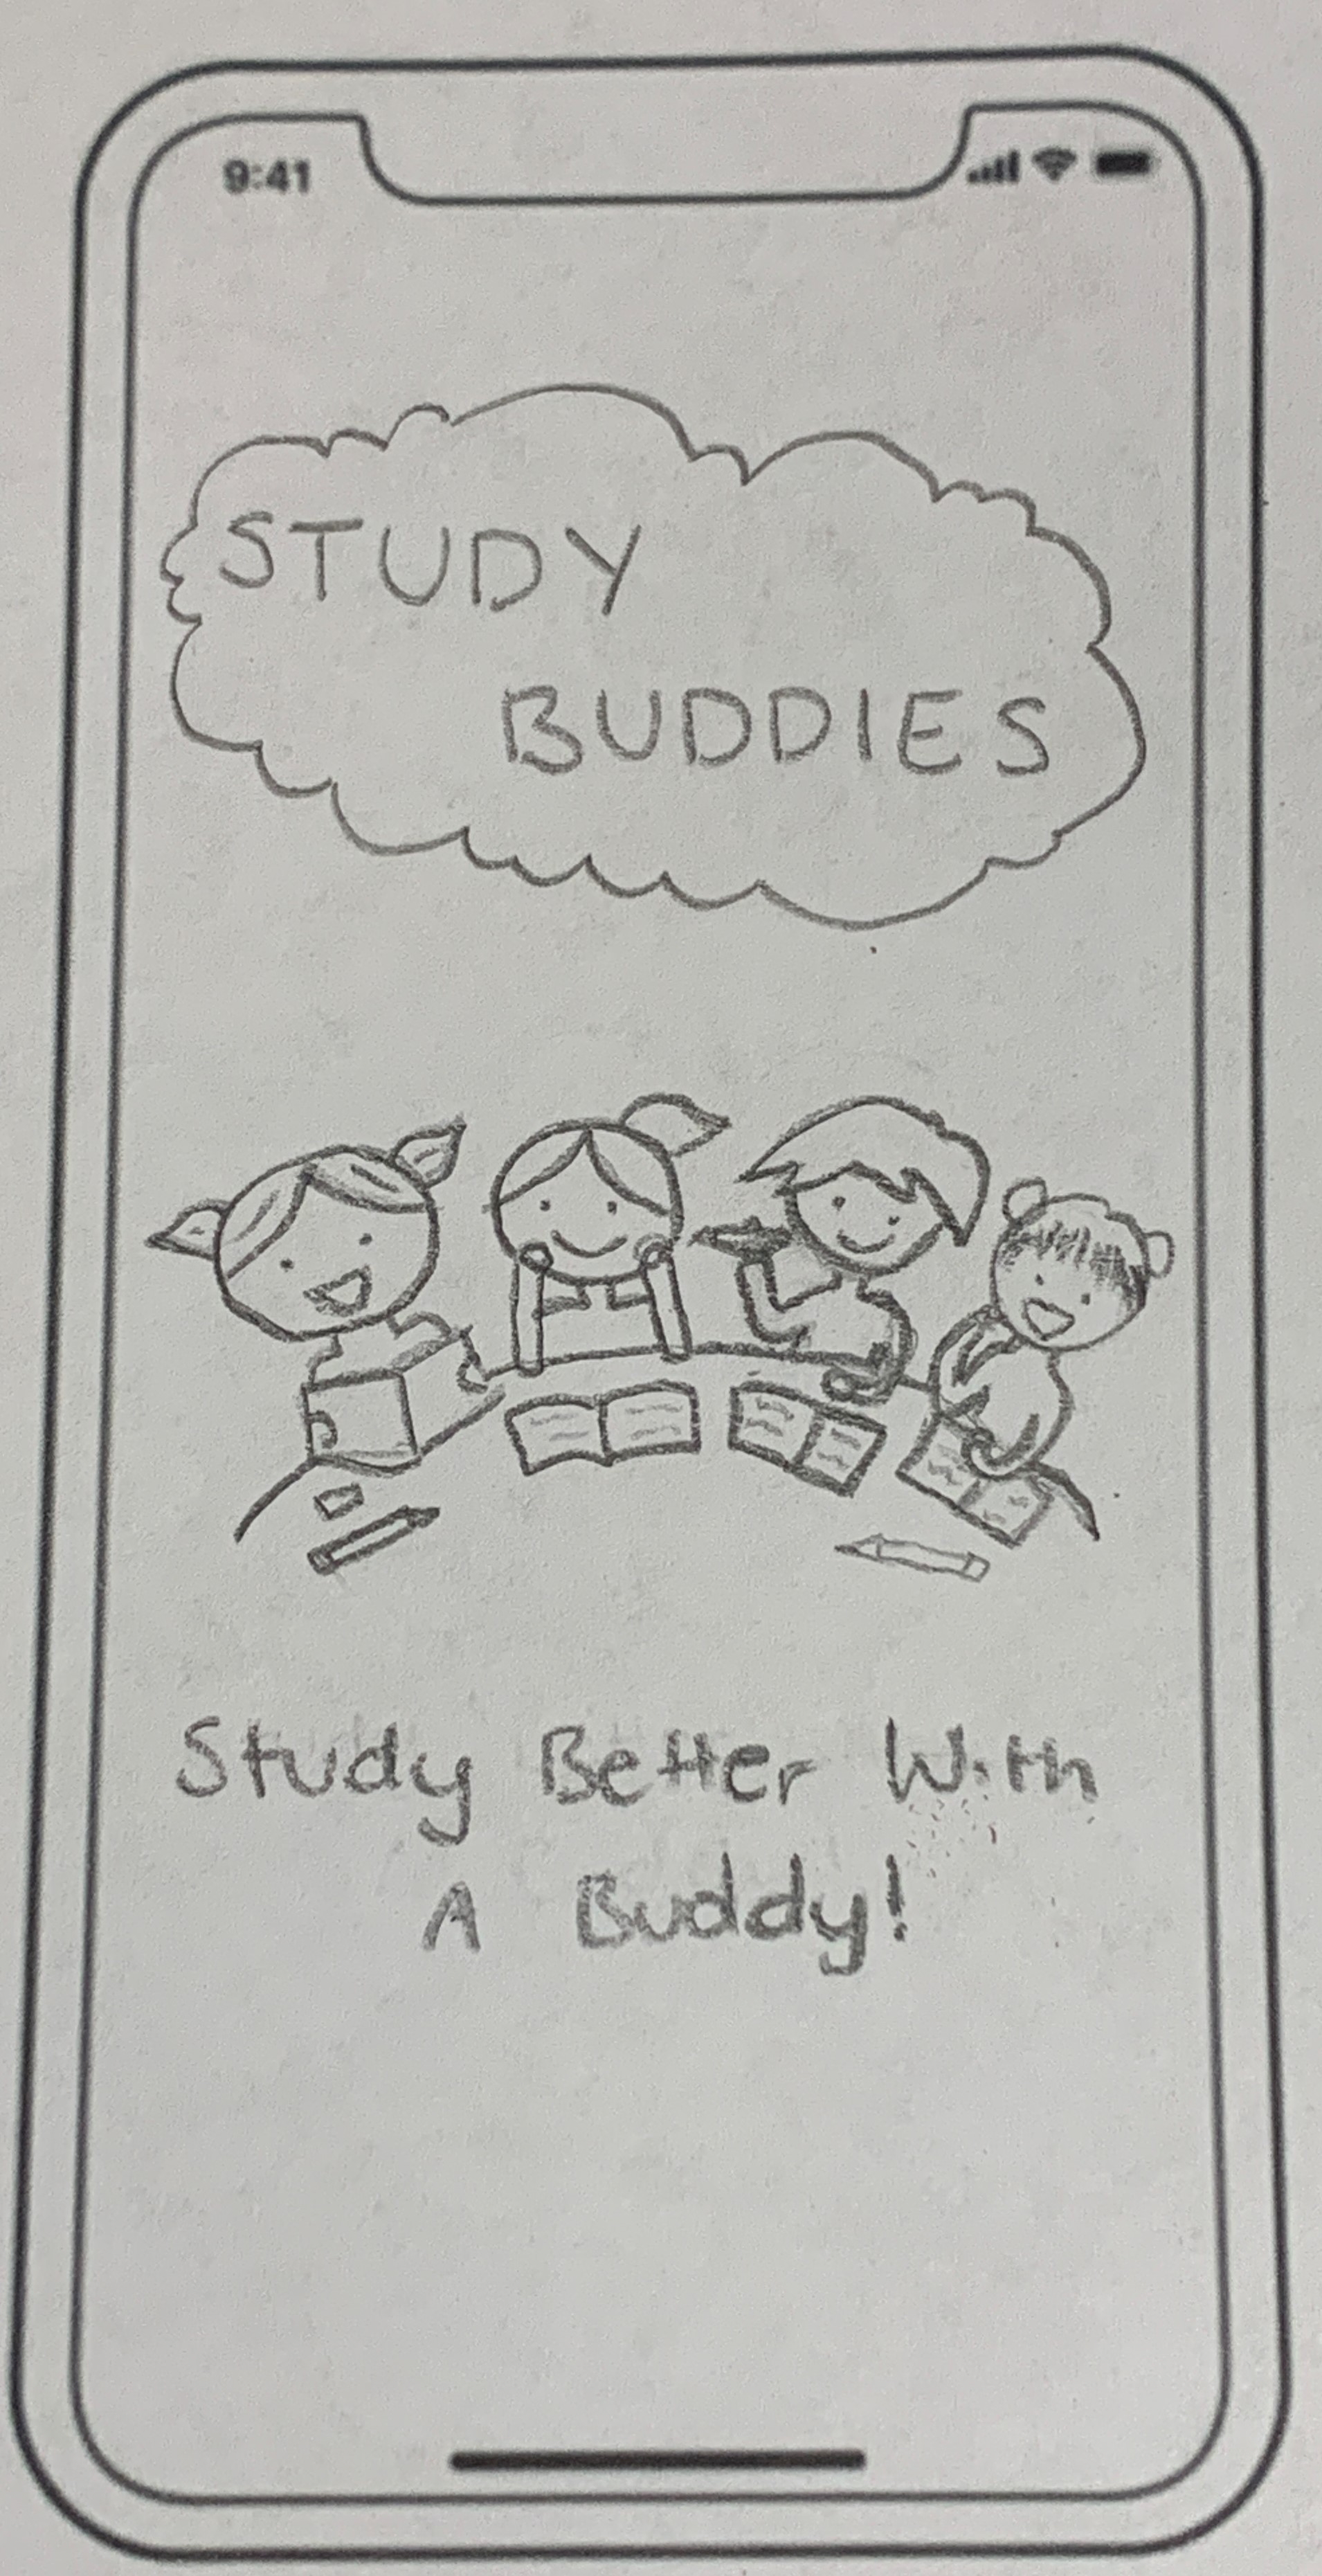 9:41
STUDY
BUDDIES
Study Better With
A Buddy!